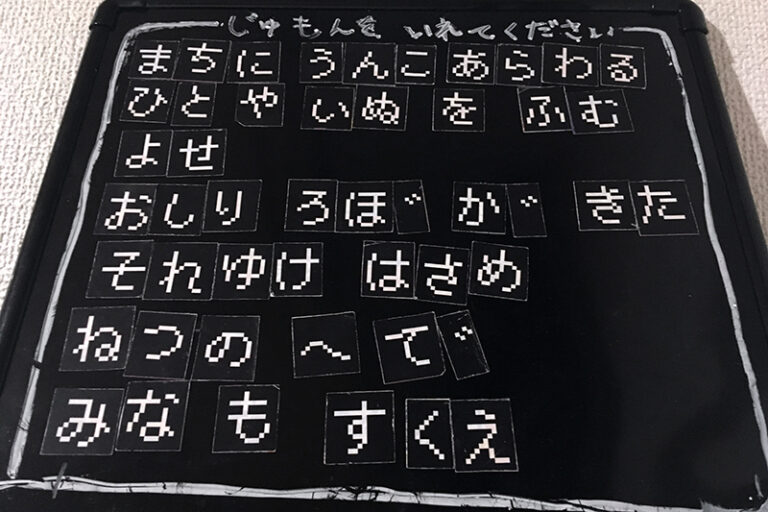 じゅもんを いれてください
まちに うんこ あらわる
ひと や いぬ を ふむ
よせ
おしり ろぼ゛ か゛ きた
それゆけ はさめ
ねつの へ て゛
みな も すくえ